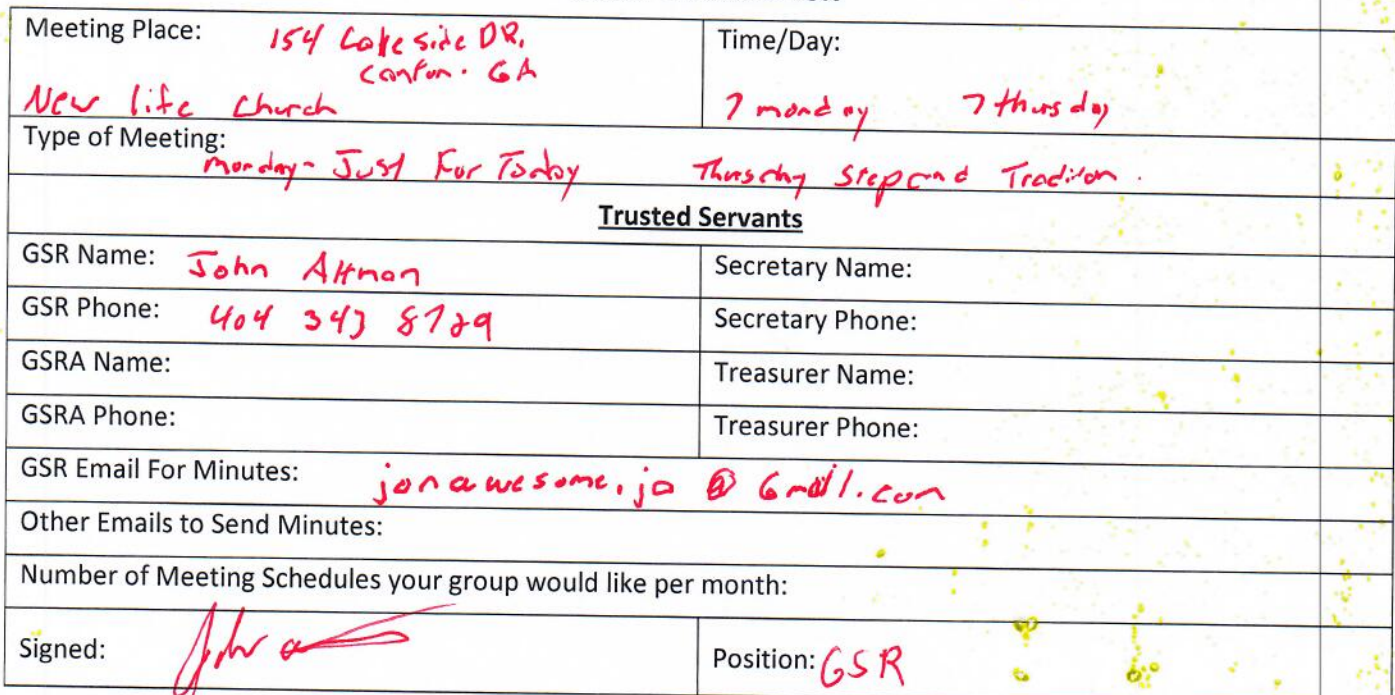 Meeting Place: 154 Lakeside DR.
Canton. GA
New life Church
Time/Day:
7 monday 7 thursday
Type of Meeting:
monday - Just For Today Thursday Step and Tradition.
Trusted Servants
GSR Name: John Altman
Secretary Name:
GSR Phone: 404 343 8729
Secretary Phone:
GSRA Name:
Treasurer Name:
GSRA Phone:
Treasurer Phone:
GSR Email For Minutes: jonawesome.ja @ Gmail.com
Other Emails to Send Minutes:
Number of Meeting Schedules your group would like per month:
Signed: John
Position: GSR